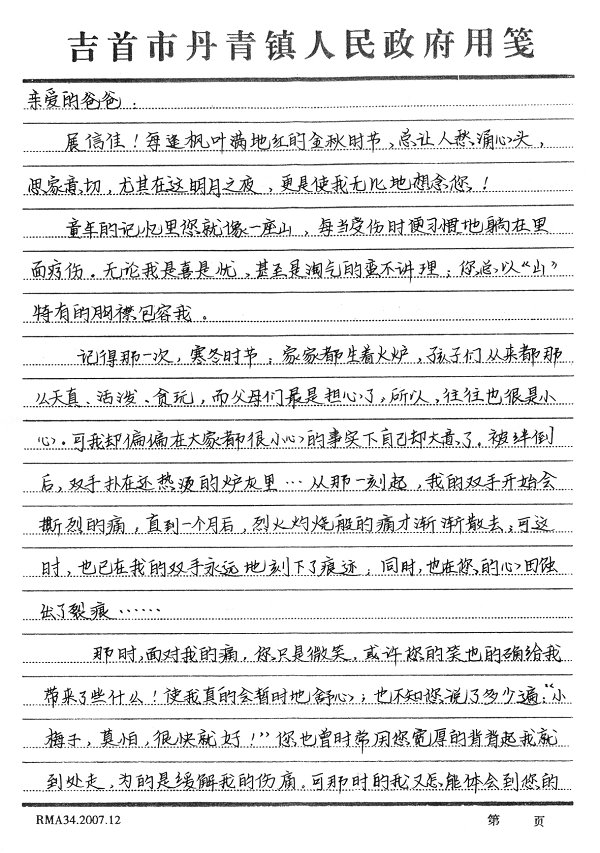 吉首市丹青镇人民政府用笺
亲爱的爸爸：
展信佳！每逢枫叶满地红的金秋时节，总让人愁涌心头，
思家意切，尤其在这明月之夜，更是使我无比地想念您！
童年的记忆里您就像一座山，每当受伤时便习惯地躺在里
面疗伤。无论我是喜是忧，甚至是淘气的蛮不讲理；您总以“山”
特有的胸襟包容我。
记得那一次，寒冬时节；家家都生着火炉，孩子们从来都那
么天真、活泼、贪玩，而父母们最是担心了，所以，往往也很是小
心。可我却偏偏在大家都很小心的事实下自己却大意了。被绊倒
后，双手扑在还热烫的炉灰里…从那一刻起，我的双手开始会
撕烈的痛，直到一个月后，烈火灼烧般的痛才渐渐散去；可这
时，也已在我的双手永远地刻下了痕迹；同时，也在您的心田蚀
出了裂痕……
那时，面对我的痛，您只是微笑，或许您的笑也的确给我
带来了些什么！使我真的会暂时地舒心；也不知您说了多少遍：“小
梅子，莫怕，很快就好！”您也曾时常用您宽厚的背背起我就
到处走，为的是缓解我的伤痛。可那时的我又怎能体会到您的
RMA34.2007.12 第 页